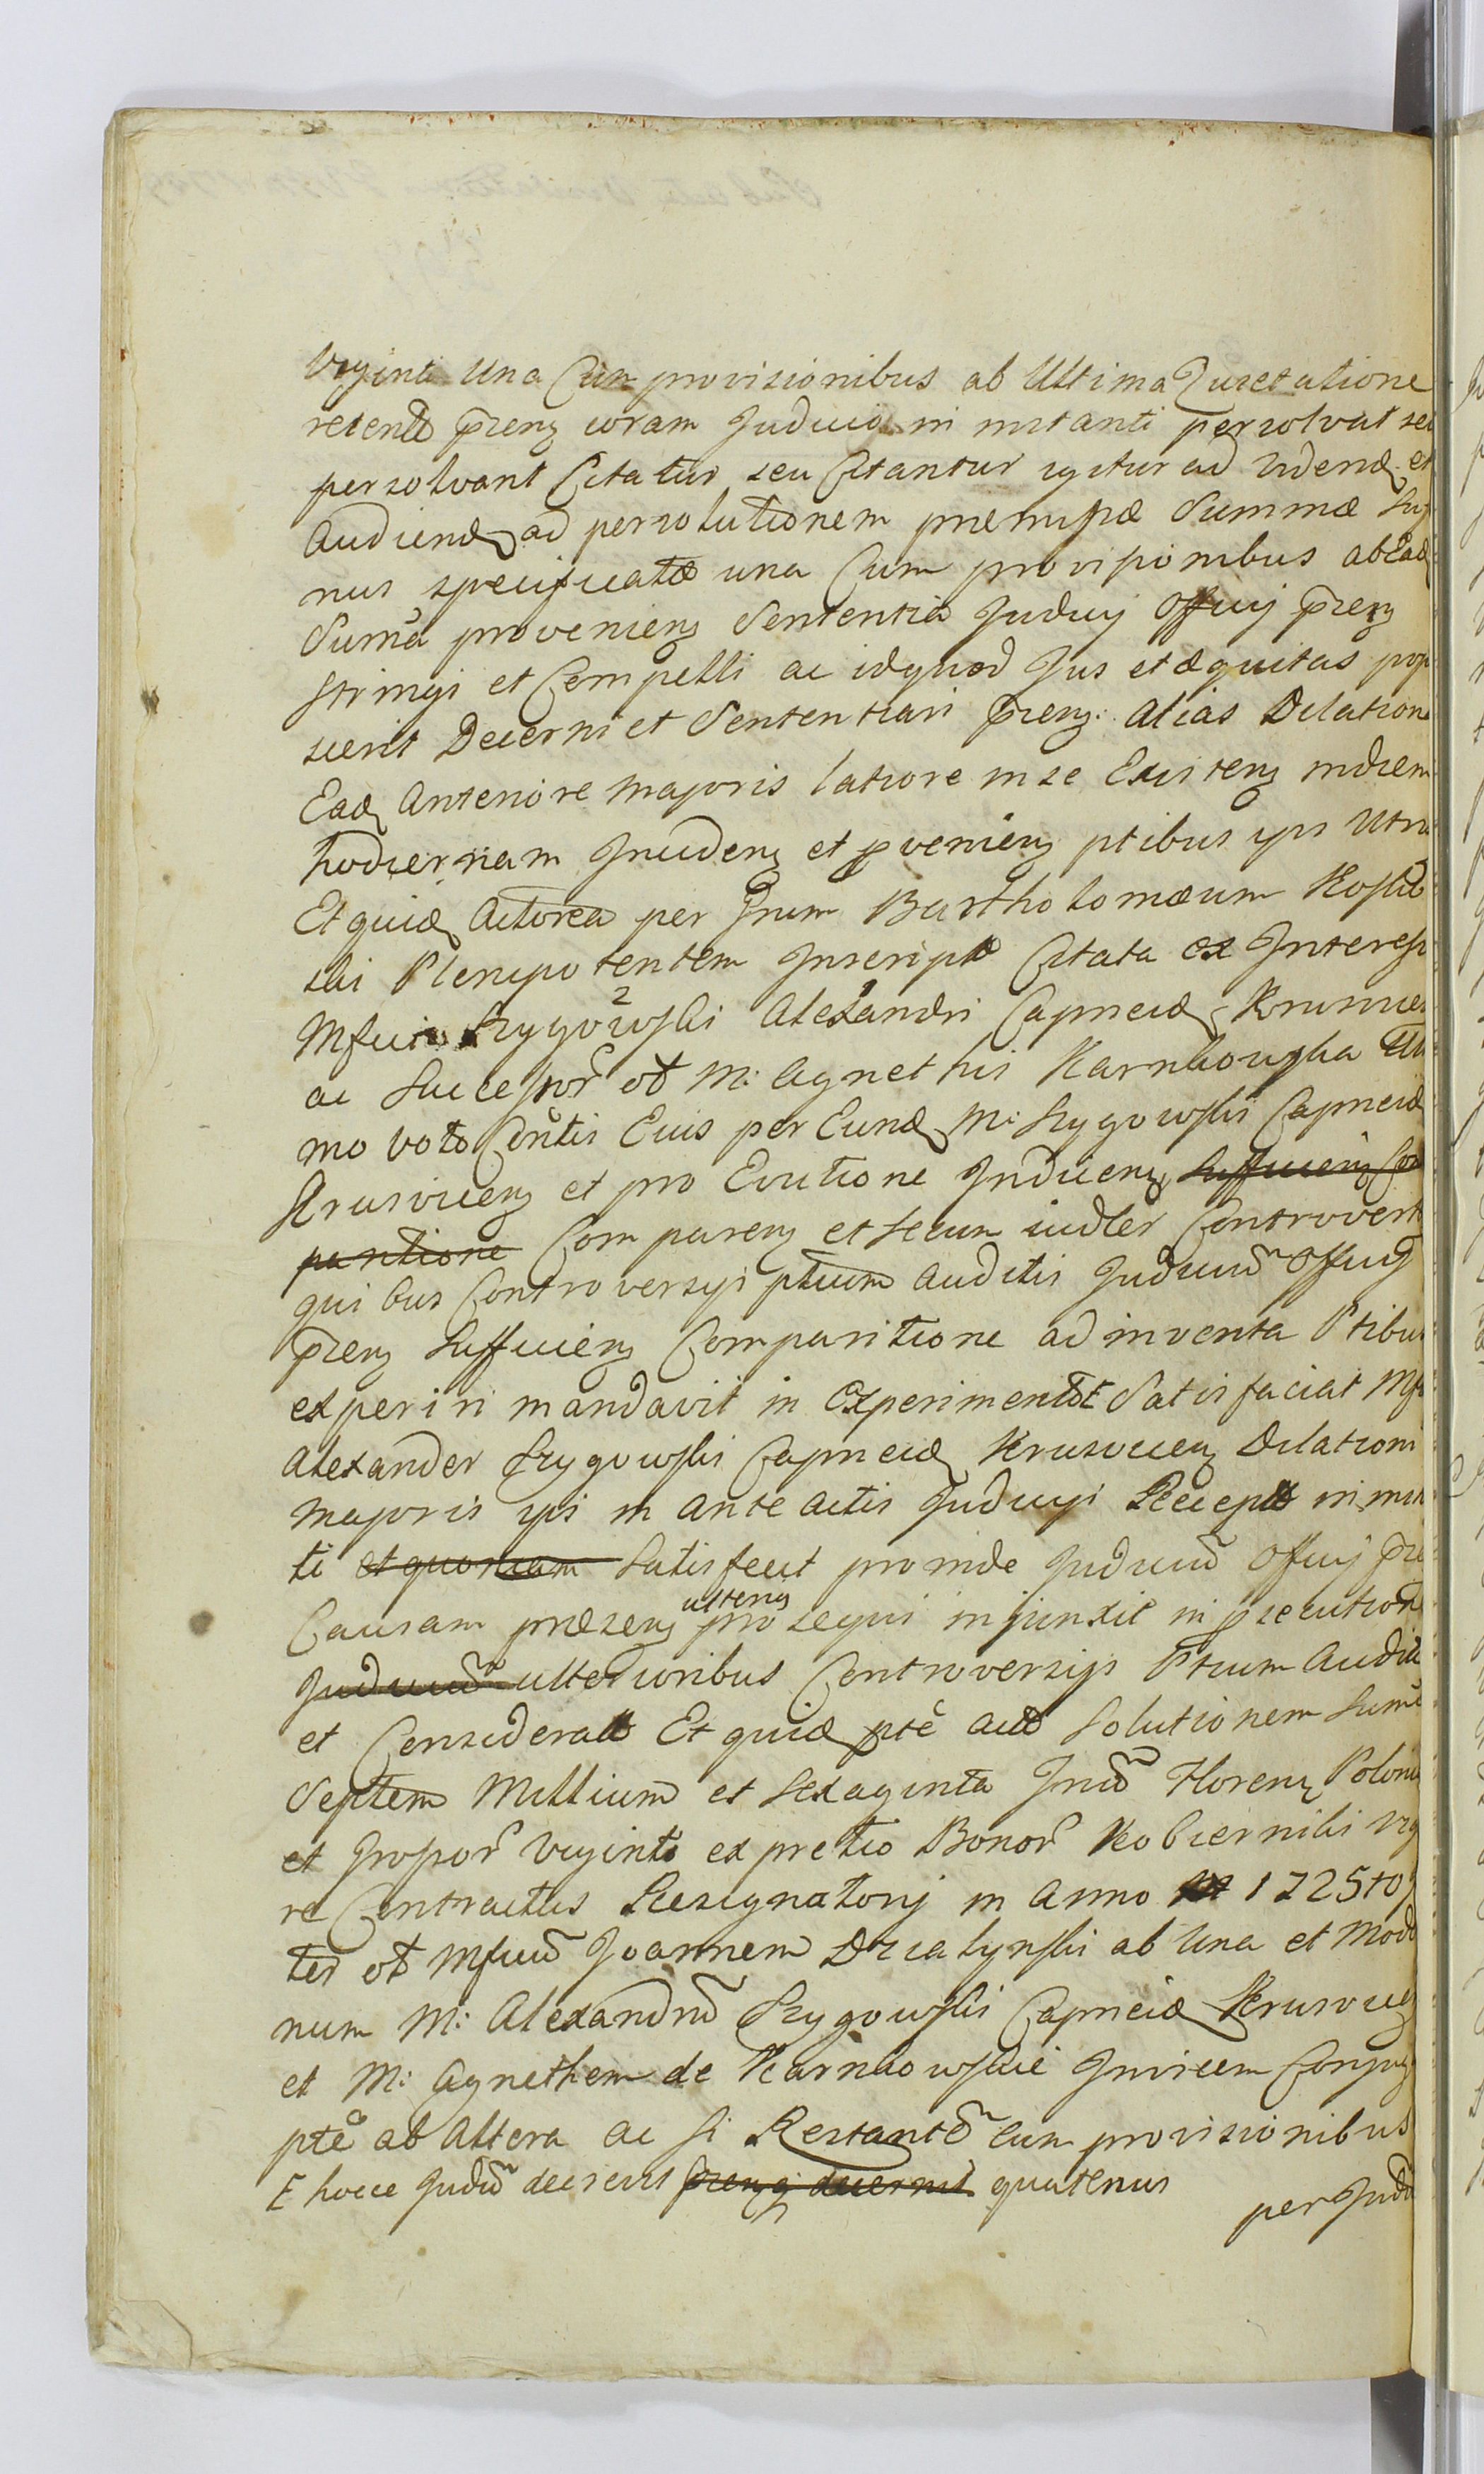 Viginti una Cum provisionibus ab Ultima Quietatione
retent pñeng coram Judicio in instanti persolvat seu
persolvant Citatur seu Citantur igitur ad videnđ et
Audienđ ad persolutionem præmissæ Summæ
nus specificatæ una Cum provisionibus ab Eađ
Sumã provenieng Sententia Judicij Officij pñeng
stringi et Compelli ac idquod Jus et æquitas popo
scerit Decerni et Sententiari pñeng: alias Dilatione
Eađ Anteriore majoris latiore in se Existeng in diem
hodiernam Incideng et pvenieng ptibus ijs Utris
Et quiđ Actorea per Gñum Bartholomæum
ski Plenipotentem Inscript Citata ex Interesse
Mfici 2 Szygowski 1 Alexandri Capneiđ Krusvicen
ac Successor oł M: Agnethis Karnkowska Ulti
mo voto Cõntis Eius per Eunđ M: Szygowski Capneiđ
Krusvicieng et pro Evictione Induceng Sufficieng Com
paritione Compareng et secum iudler Controvert
quibus Controversijs ptium auditis Judiciũ Officij
pñeng Sufficieng Comparitione adinventa Ptibus
experiri mandavit in Experimento E Satisfaciat Mfi
Alexander Szygowski Capneiđ Krusvicieng Dilationi
majoris ijs in ante actis Judicijs Recept in instan
ti et quoniam satisfecit proinde Judiciũ Officij pñe
Causam præseng ulterius prosequi injunxit in psecutione
Judiciũ ulterioribus Controversijs Ptium Audit
et Considerat Et quiđ ptẽ act solutionem Sumẽ
Septem Millium et sexaginta Juđ Floreng Polonic
et Grossor Viginti ex pretio Bonor Kobierniki vig
re Contractus Resignatorij in Anno 1725to
ter oł Mficũ Joannem Działynski ab una et Mođ
num M: Alexandrũ Szygowski Capneiđ Krusvicieng
et M: Agnethem de Karnkowskie Invicem Conjug
ptẽ ab altera ac si Restantẽ cum provisionibus
E hocce Judiũ decrevit pñeng: decernit quatenus
per Judi